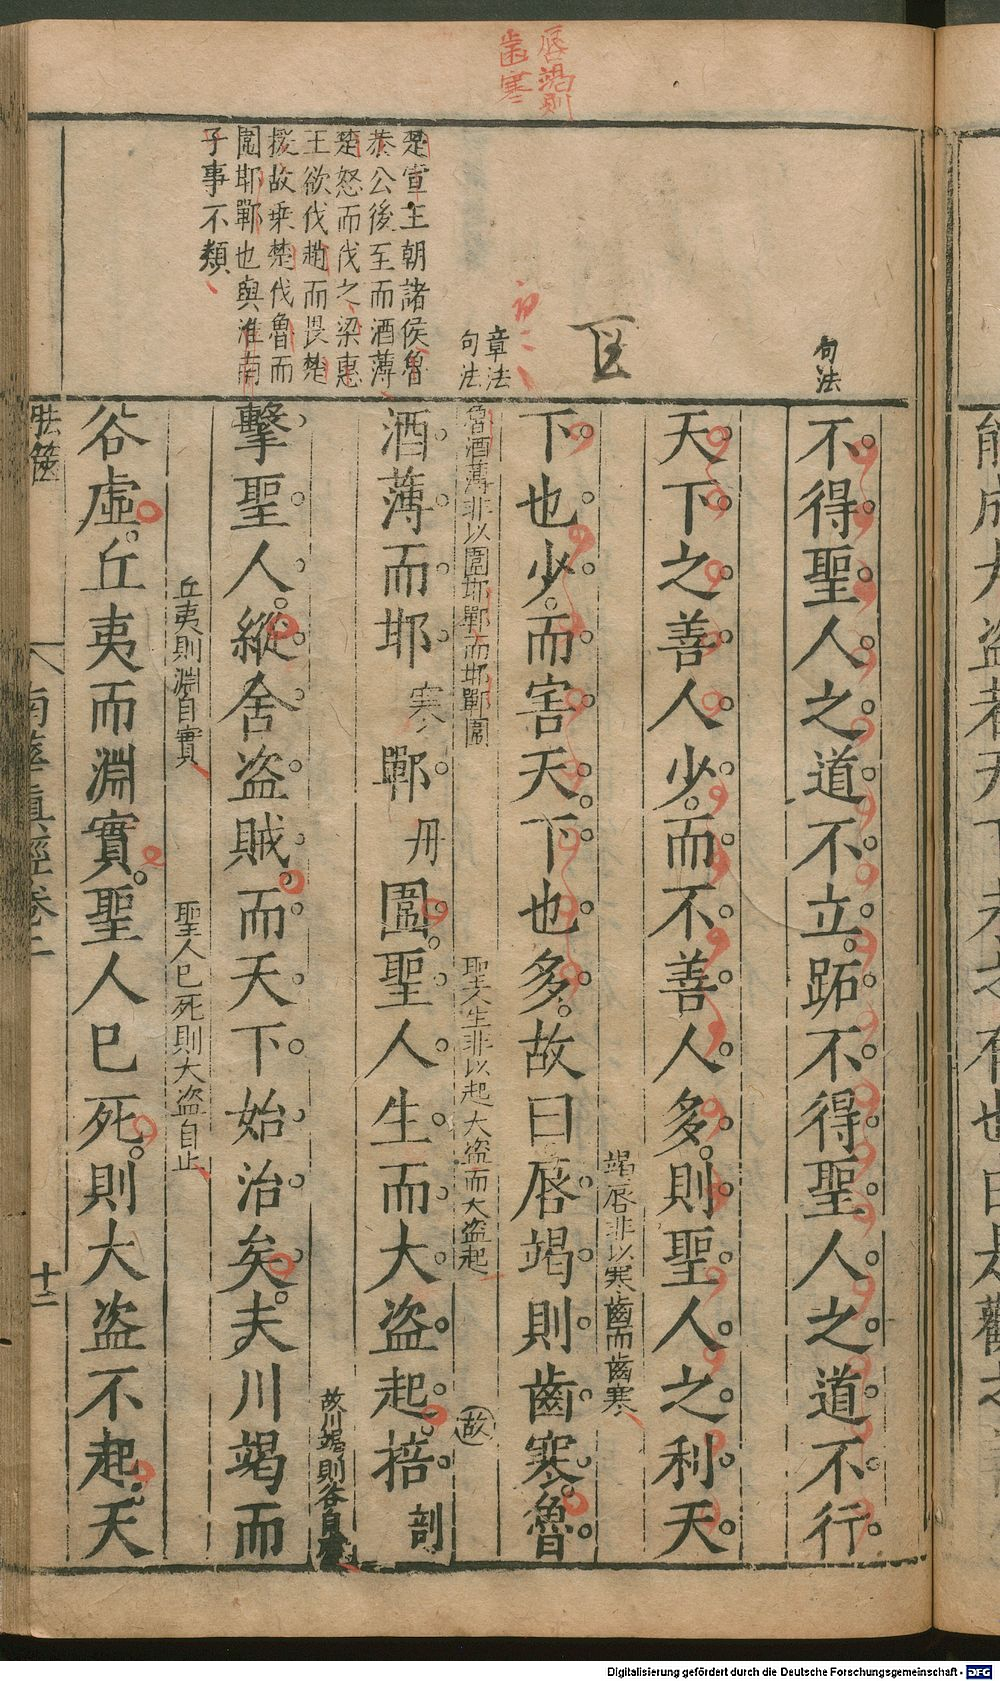 唇竭則
齒寒
句法
章法
句法
楚宣王朝諸侯魯
恭公後至而酒薄
楚怒而伐之梁惠
王欲伐趙而畏楚
援故乘楚伐魯而
圍邯鄲也與淮南
子事不類
不得聖人之道不立。跖不得聖人之道不行
天下之善人少。而不善人多。則聖人之利天
竭唇非以寒齒而齒寒
下也少。而害天下也多。故曰唇竭則齒寒。魯
魯酒薄非以圍邯鄲而邯鄲圍
聖人生非以起大盜而大盜起
故
酒薄而邯寒鄲丹圍。聖人生而大盜起。掊剖
故川竭則谷自虛
擊聖人。縱舍盜賊。而天下始治矣。夫川竭而
丘夷則淵自實
聖人已死則大盜自止
谷虛。丘夷而淵實。聖人已死。則大盜不起。天
胠篋
南華真經卷二
十二
Digitalisierung gefördert durch die Deutsche Forschungsgemeinschaft - DFG